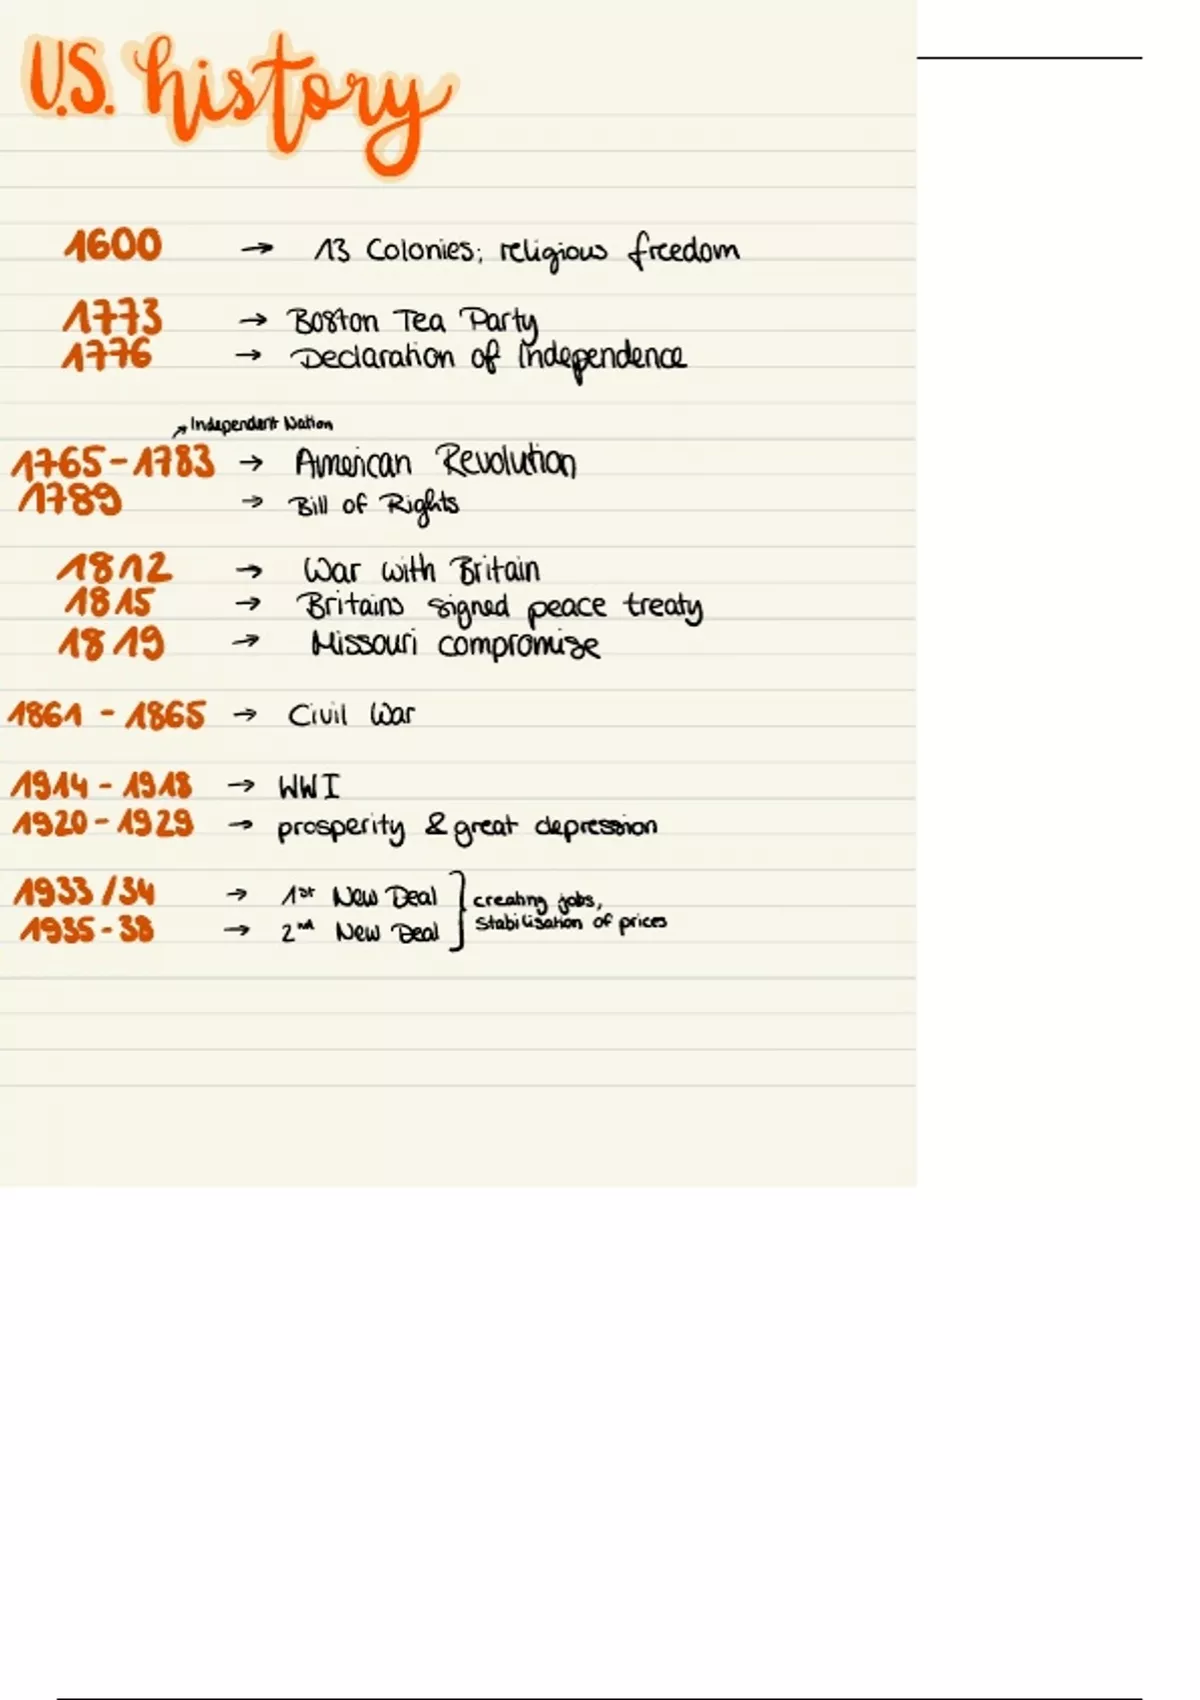 U.S. history
1600 → 13 Colonies; religious freedom
1773 → Boston Tea Party
1776 → Declaration of Independence
↗ Independent Nation
1765-1783 → American Revolution
1789 → Bill of Rights
1812 → War with Britain
1815 → Britains signed peace treaty
1819 → Missouri compromise
1861 - 1865 → Civil War
1914 - 1918 → WWI
1920 - 1929 → prosperity & great depression
1933 / 34 → 1st New Deal
creating jobs,
stabilisation of prices
1935 - 38 → 2nd New Deal